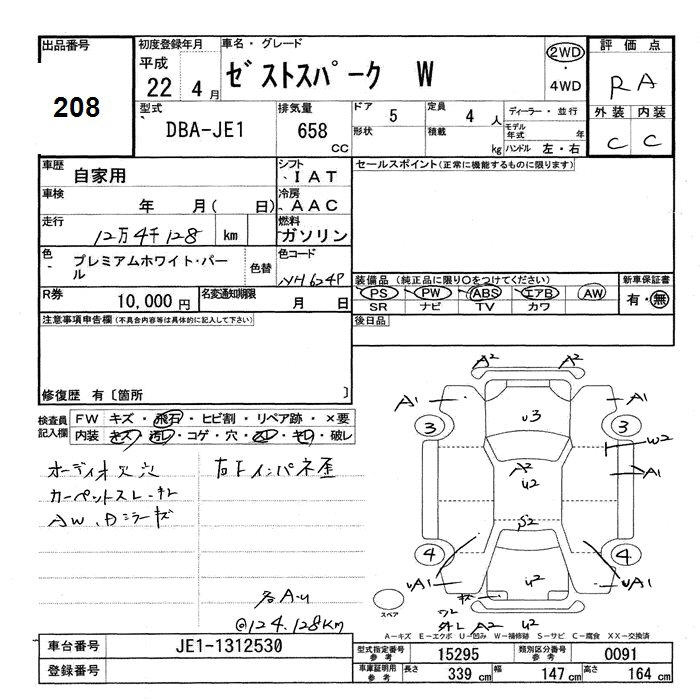 出品番号 初度登録年月 車名・グレード 2WD 評価点
208 平成 22 4月 ゼストスパーク W ・ 4WD RA
型式 DBA-JE1 排気量 658 CC ドア 5 定員 4 人 ディーラー・並行 外装 内装
形状 積載 kg モデル年式 年 ハンドル 左・右 C C
車歴 自家用 シフト IAT セールスポイント(正常に機能するものに限ります)
車検 年 月( 日) 冷房 AAC
走行 12万4千128 km 燃料 ガソリン
色 プレミアムホワイト・パール 色替 色コード NH624P
装備品 (純正品に限り○をつけてください) 新車保証書
PS PW ABS エアB AW 有・無
SR ナビ TV カワ
R券 10,000円 名変通知期限 月 日
後日品
注意事項申告欄(不具合内容等は具体的に記入して下さい)
修復歴 有〔箇所 〕
検査員記入欄 FW キズ・飛石・ヒビ割・リペア跡・×要
内装 キズ・汚レ・コゲ・穴・スレ・キレ・破レ
オーディオ欠 穴
カーペットスレ・キレ
AW、Dミラーキズ
右下インパネ歪
各A・U
@124.128KM
A2 A2
A1 A1
3 U3 3
W2
A2 U2 A1
S2
4 4
UA1 キズ U2 UA1
スペア
A2 U2
A−キズ E−エクボ U−凹み W−補修跡 S−サビ C−腐食 XX−交換済
車台番号 JE1-1312530
登録番号
型式指定番号 参考 15295 類別区分番号 参考 0091
車庫証明用 参考 長さ 339 cm 幅 147 cm 高さ 164 cm